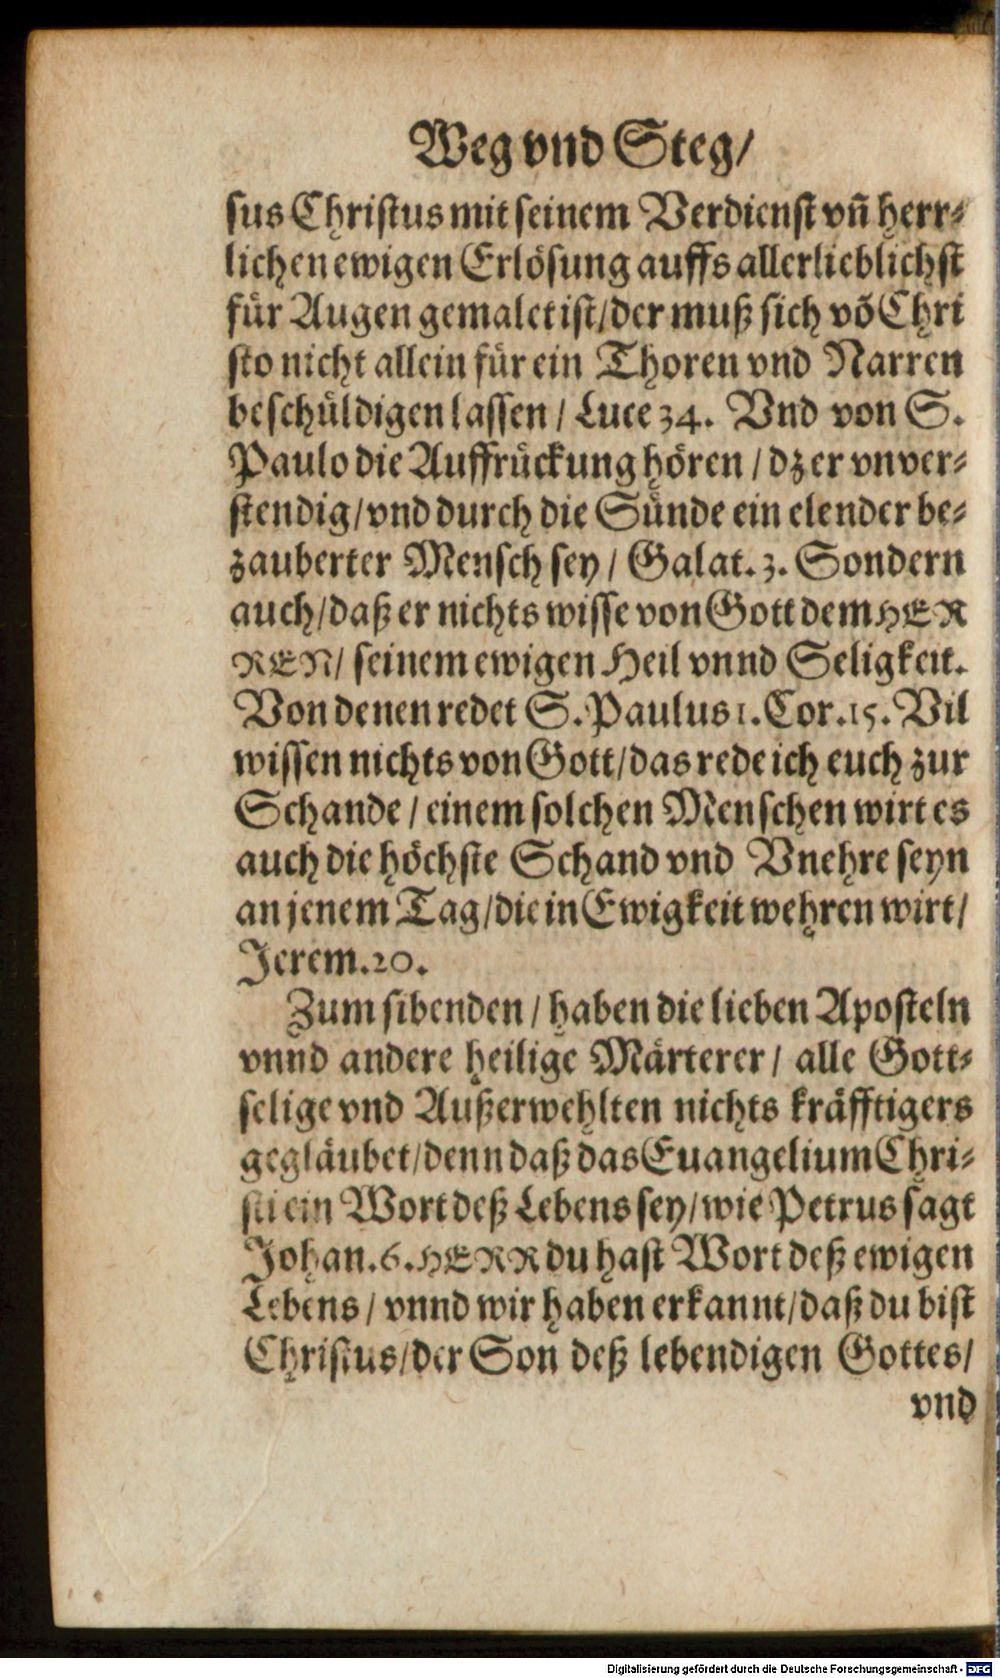 Weg vnd Steg/
sus Christus mit seinem Verdienst vñ herr⸗
lichen ewigen Erlösung auffs allerlieblichst
für Augen gemalet ist/der muß sich võ Chri
sto nicht allein für ein Thoren vnd Narren
beschüldigen lassen / Luce 34. Vnd von S.
Paulo die Auffrückung hören / dz er vnver⸗
stendig/vnd durch die Sünde ein elender be⸗
zauberter Mensch sey / Galat. 3. Sondern
auch/daß er nichts wisse von Gott dem HER
REN/ seinem ewigen Heil vnnd Seligkeit.
Von denen redet S. Paulus 1. Cor. 15. Vil
wissen nichts von Gott/das rede ich euch zur
Schande / einem solchen Menschen wirt es
auch die höchste Schand vnd Vnehre seyn
an jenem Tag/die in Ewigkeit wehren wirt/
Jerem. 20.
Zum sibenden / haben die lieben Aposteln
vnnd andere heilige Märterer/ alle Gott⸗
selige vnd Außerwehlten nichts kräfftigers
gegläubet/denn daß das Euangelium Chri⸗
sti ein Wort deß Lebens sey/wie Petrus sagt
Johan. 6. HERR du hast Wort deß ewigen
Lebens / vnnd wir haben erkannt/daß du bist
Christus/der Son deß lebendigen Gottes/
vnd
Digitalisierung gefördert durch die Deutsche Forschungsgemeinschaft - DFG